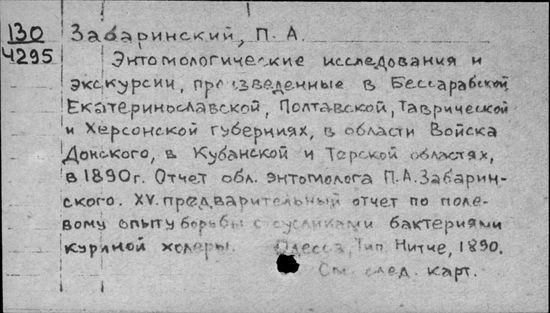 130 Забаринский, П. А.
4295 Энтомологические исследования и
экскурсии, произведенные в Бессарабской
Екатеринославской, Полтавской, Таврической
и Херсонской губерниях, в области Войска
Донского, в Кубанской и Терской областях,
в 1890г. Отчет обл. энтомолога П.А.Забарин-
ского. XV. предварительный отчет по поле-
вому опыту борьбы с сусликами бактериями
куриной холеры. Одесса, Тип. Нитче, 1890.
См. след. карт.